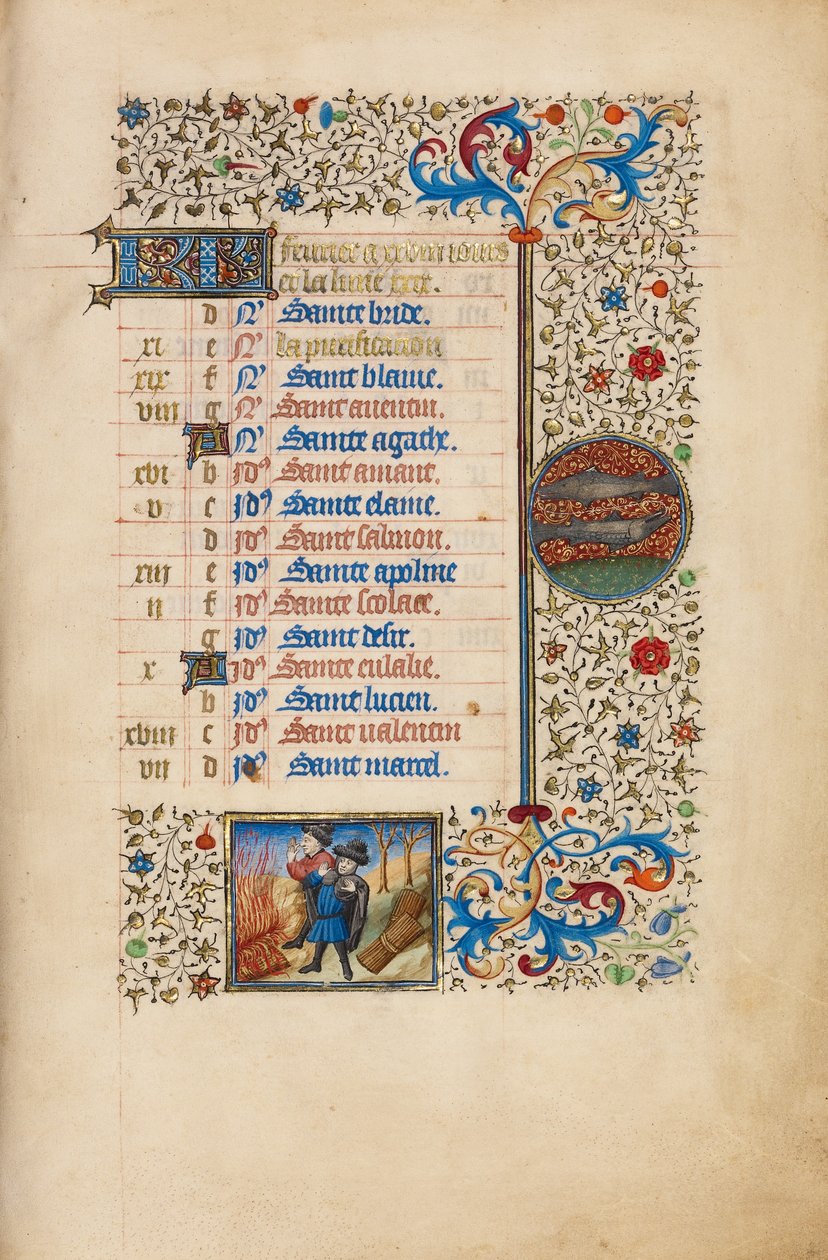 KL feurier a xxviii iours
et la lune xxix.
d N' Sainte bride.
xi e N' la purificacion
xix f N' Saint blaise.
viii g N' Saint auentin.
A N' Sainte agathe.
xvi b id' Saint amant.
v c id' Sainte elaine.
d id' Saint salmon.
xiii e id' Sainte apoline
ii f id' Sainte scolace.
g id' Saint desir.
x A id' Sainte eulalie.
b id' Saint lucien.
xviii c id' Saint ualentin
vii d id' Saint marcel.